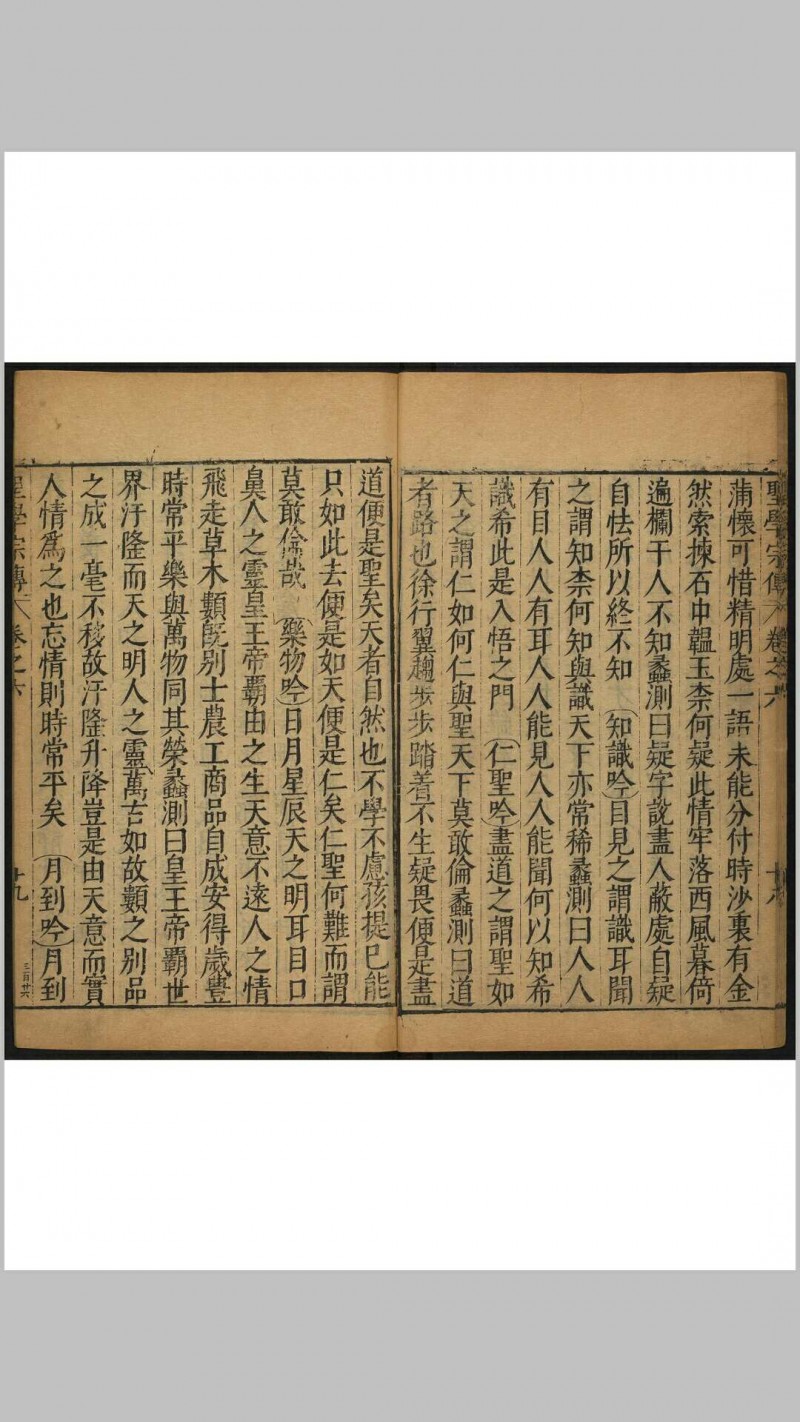 聖學宗傳 卷之六 十八
蒲懷可惜精明處一語未能分付時沙裏有金
然索揀石中韞玉柰何疑此情牢落西風暮倚
遍欄干人不知蠡測曰疑字說盡人蔽處自疑
自怯所以終不知 知識吟 目見之謂識耳聞
之謂知柰何知與識天下亦常稀蠡測曰人人
有目人人有耳人人能見人人能聞何以知希
識希此是入悟之門 仁聖吟 盡道之謂聖如
天之謂仁如何仁與聖天下莫敢倫蠡測曰道
者路也徐行翼趨步步踏着不生疑畏便是盡
道便是聖矣天者自然也不學不慮孩提已能
只如此去便是如天便是仁矣仁聖何難而謂
莫敢倫哉 藥物吟 日月星辰天之明耳目口
鼻人之靈皇王帝霸由之生天意不遠人之情
飛走草木類旣別士農工商品自成安得歲豊
時常平樂與萬物同其榮蠡測曰皇王帝霸世
界汙隆而天之明人之靈萬古如故類之別品
之成一毫不移故汙隆升降豈是由天意而實
人情爲之也忘情則時常平矣 月到吟 月到
聖學宗傳 卷之六 十九